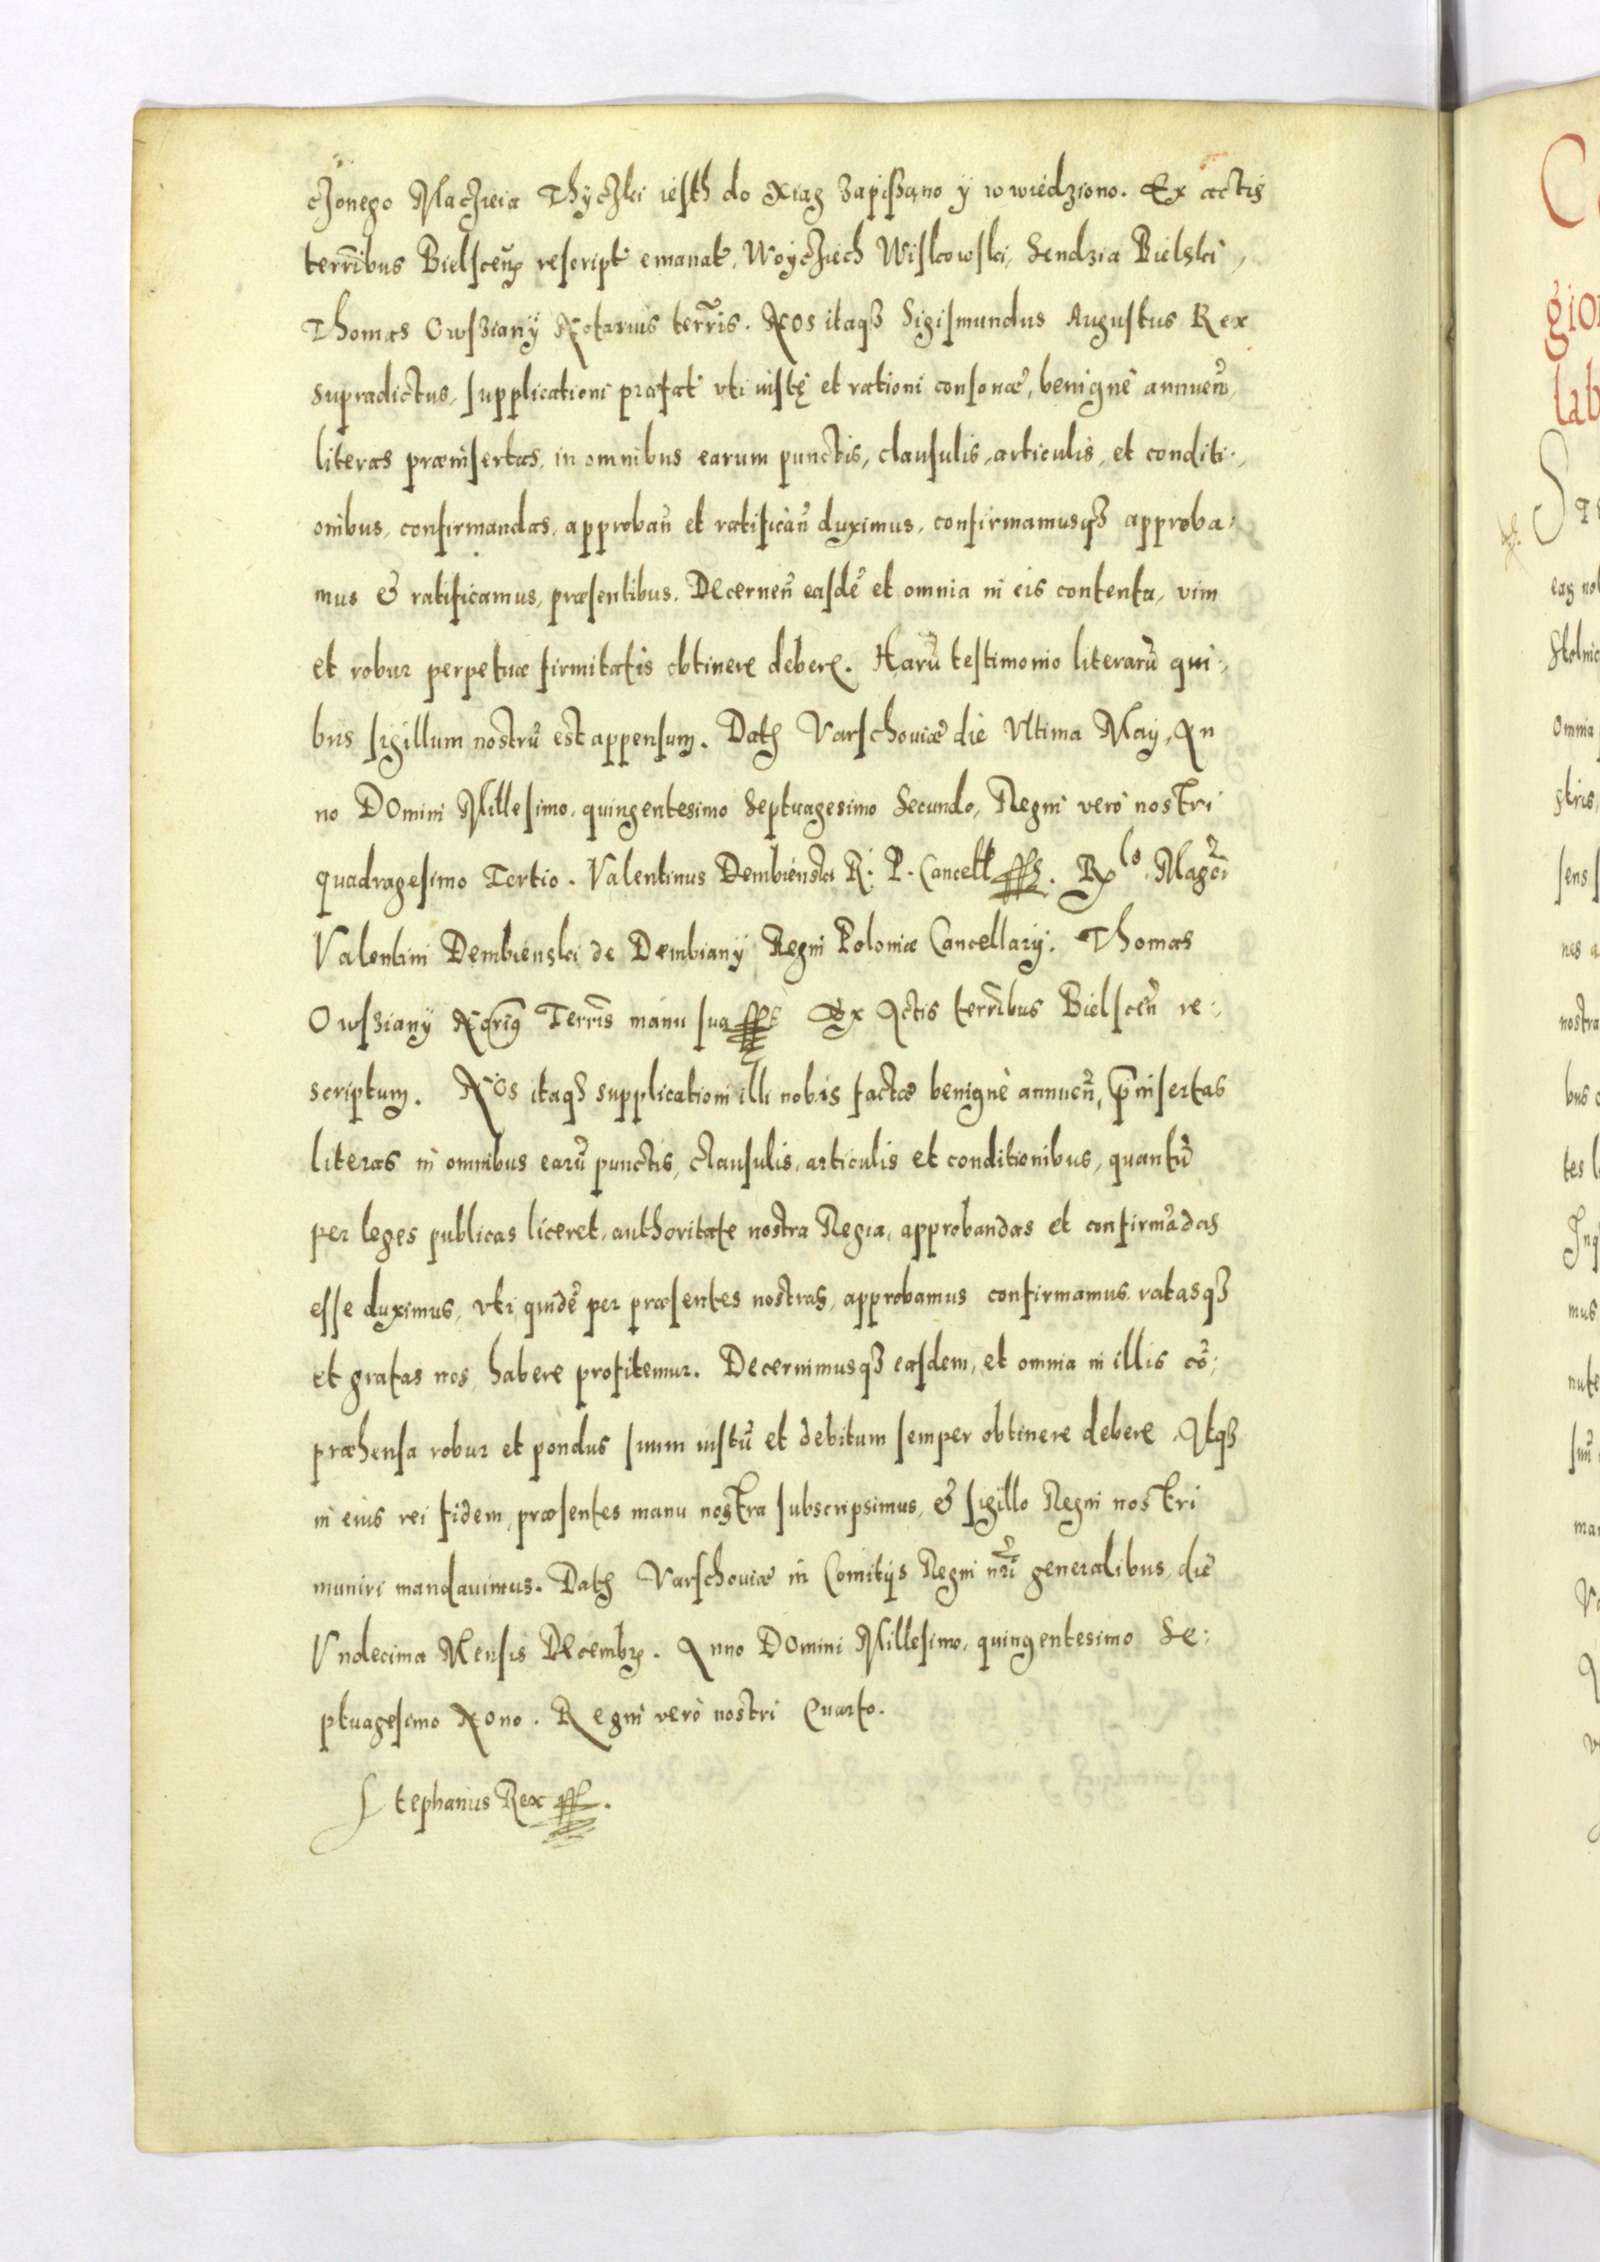 cżonego Maczieia Thyczki iesth do Xiag zapißano y w wiedziono. Ex actis
terrĩbus Bielscen̄ rescript emanat, Woyćziech Wiskowski, Sendzia Bielski,
Thomas Owsziany Notarius terr̃is. Nos itaqꝫ Sigismundus Augustus Rex
supradictus, supplicationi præfat vti iustę et rationi consonæ, benignè annuen̄,
literas præinsertas, in omnibus earum punctis, clausulis, articulis, et conditi-
onibus, confirmandas, approban̄ et ratifican̄ duximus, confirmamusqꝫ approba-
mus & ratificamus, præsentibus. Decernen̄ easdē et omnia in eis contenta, vim
et robur perpetuæ firmitatis obtinere debere. Harū testimonio literarū qui-
bus sigillum nostrū est appensum. Datꝫ Varschouiæ die Vltima May, An
no Domini Millesimo, quingentesimo Septuagesimo Secundo, Regni verò nostri
quadragesimo Tertio. Valentinus Dembienski R. P. Cancell. Rlo Magci
Valentini Dembienski de Dembiany Regni Poloniæ Cancellary. Thomas
Owsziany Noriꝰ Terris manu sua Ex Actis terrĩbus Bielscen̄ re-
scriptum. Nos itaqꝫ supplicationi illi nobis factæ benignè annuen̄, p̄insertas
literas in omnibus earū punctis, clausulis, articulis et conditionibus, quantū
per leges publicas liceret, authoritate nostra Regia, approbandas et confirmādas
esse duximus, vti quidē per præsentes nostras, approbamus confirmamus, ratasqꝫ
et gratas nos, habere profitemur. Decernimusqꝫ easdem, et omnia in illis cō-
præhensa robur et pondus suum iustū et debitum semper obtinere debere, Atqꝫ
in eius rei fidem, præsentes manu nostra subscripsimus, & sigillo Regni nostri
muniri mandauimus. Datꝫ Varschouiæ in Comitijs Regni nr̃i generalibus, die
Vndecima Mensis Decembrꝫ. Anno Domini Millesimo, quingentesimo Se-
ptuagesimo Nono. Regni verò nostri Quarto.
Stephanus Rex